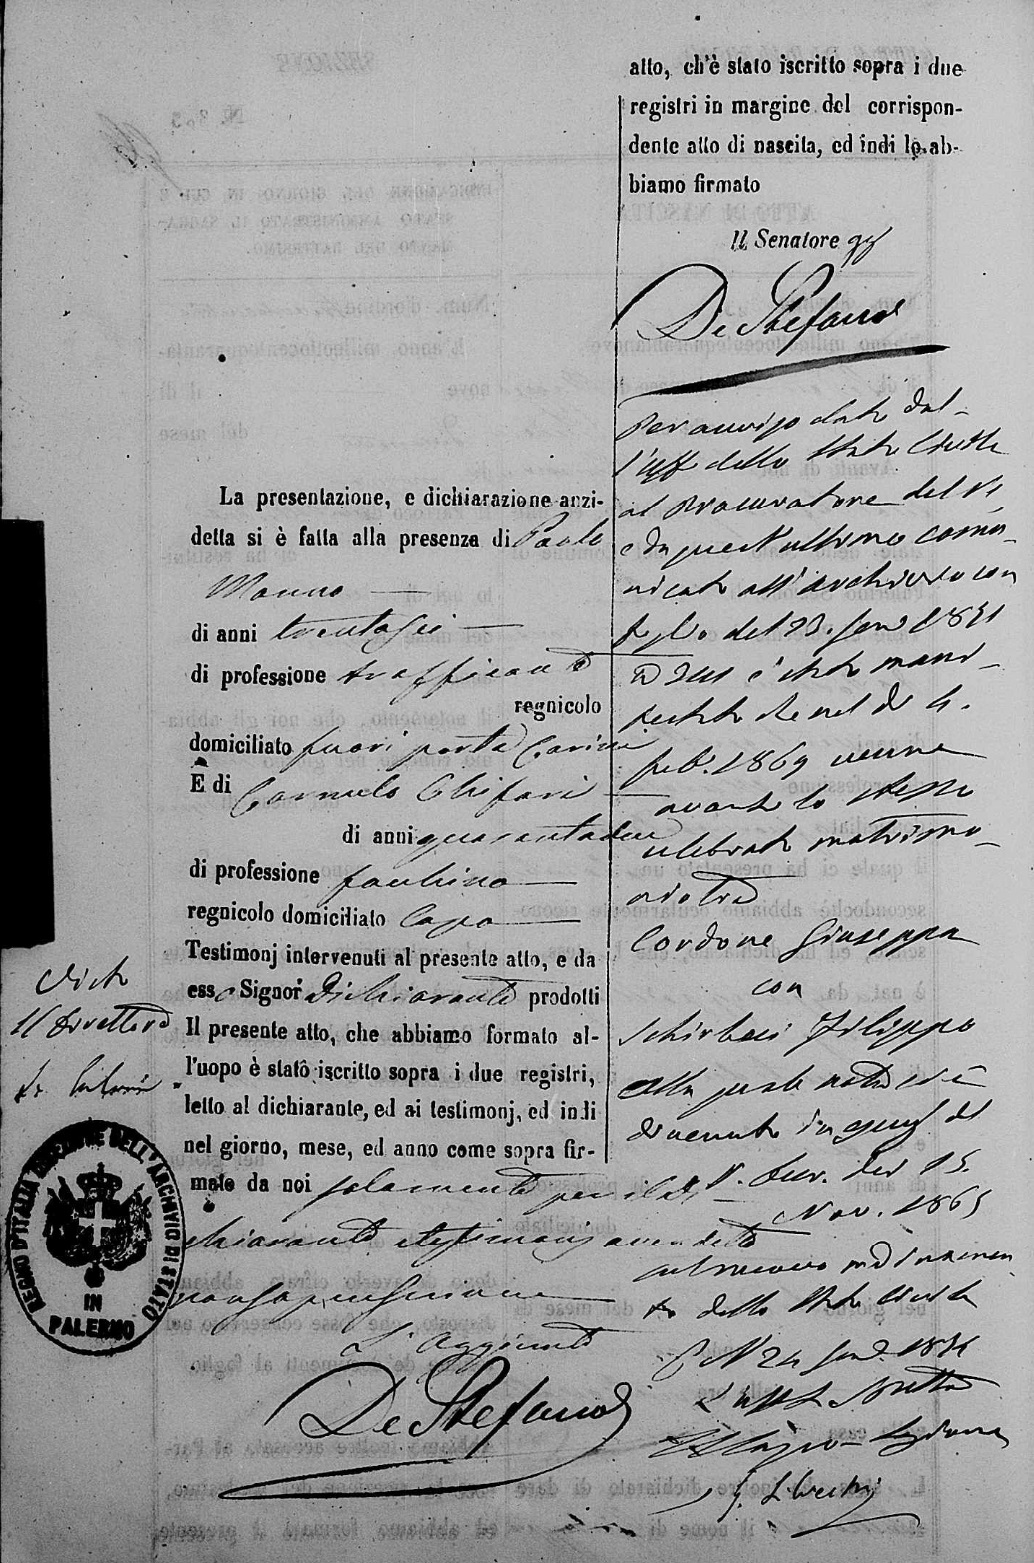 atto, ch'è stato iscritto sopra i due
registri in margine del corrispon-
dente atto di nascita, ed indi lo ab-
biamo firmato
Il Senatore
De Stefano
La presentazione, e dichiarazione anzi-
detta si è fatta alla presenza di Paolo
Manno
di anni trentasei
di professione trafficante
regnicolo
domiciliato fuori porta Carini
E di Carmelo Chifari
di anni quarantadue
di professione facchino
regnicolo domiciliato Capo
Testimonj intervenuti al presente atto, e da
esso Signor Dichiarante prodotti
Il presente atto, che abbiamo formato al-
l'uopo è stato iscritto sopra i due registri,
letto al dichiarante, ed ai testimonj, ed indi
nel giorno, mese, ed anno come sopra fir-
mato da noi solamente per il di
chiarante e testimonj avendo detto
non sapere scrivere
L'Aggiunto
De Stefano
Per avviso dato dal-
l'Uff dello Stato Civile
al Procuratore del Re
e da quest'ultimo comu-
nicato all'archivio con
foglio del 23. Gen
è stato mani-
festato che nel dì 4.
feb. 1869 venne
avanti lo stesso
celebrato matrimo-
nio tra
Cordone Giuseppa
con
Filippo
Alla quale nota si è
divenuto in
15.
Nov. 1865
sul nuovo ordinamen
to dello Stato Civile
24
Visto
Il Direttore
REGNO D'ITALIA DIREZIONE DELL'ARCHIVIO DI STATO
IN
PALERMO